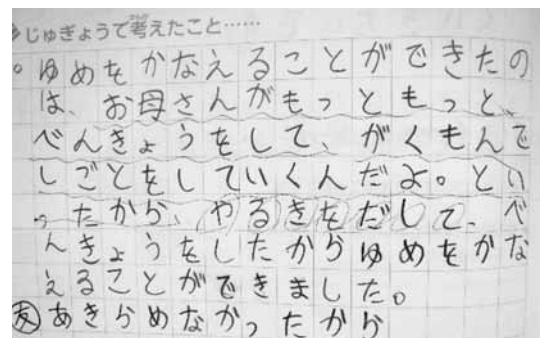 じゅぎょうで考えたこと……
。ゆめをかなえることができたの
は、お母さんがもっともっと、
べんきょうをして、がくもんで
しごとをしていくんだよ。とい
ったから、やるきをだして、べ
んきょうをしたからゆめをかな
えることができました。
友あきらめなかったから